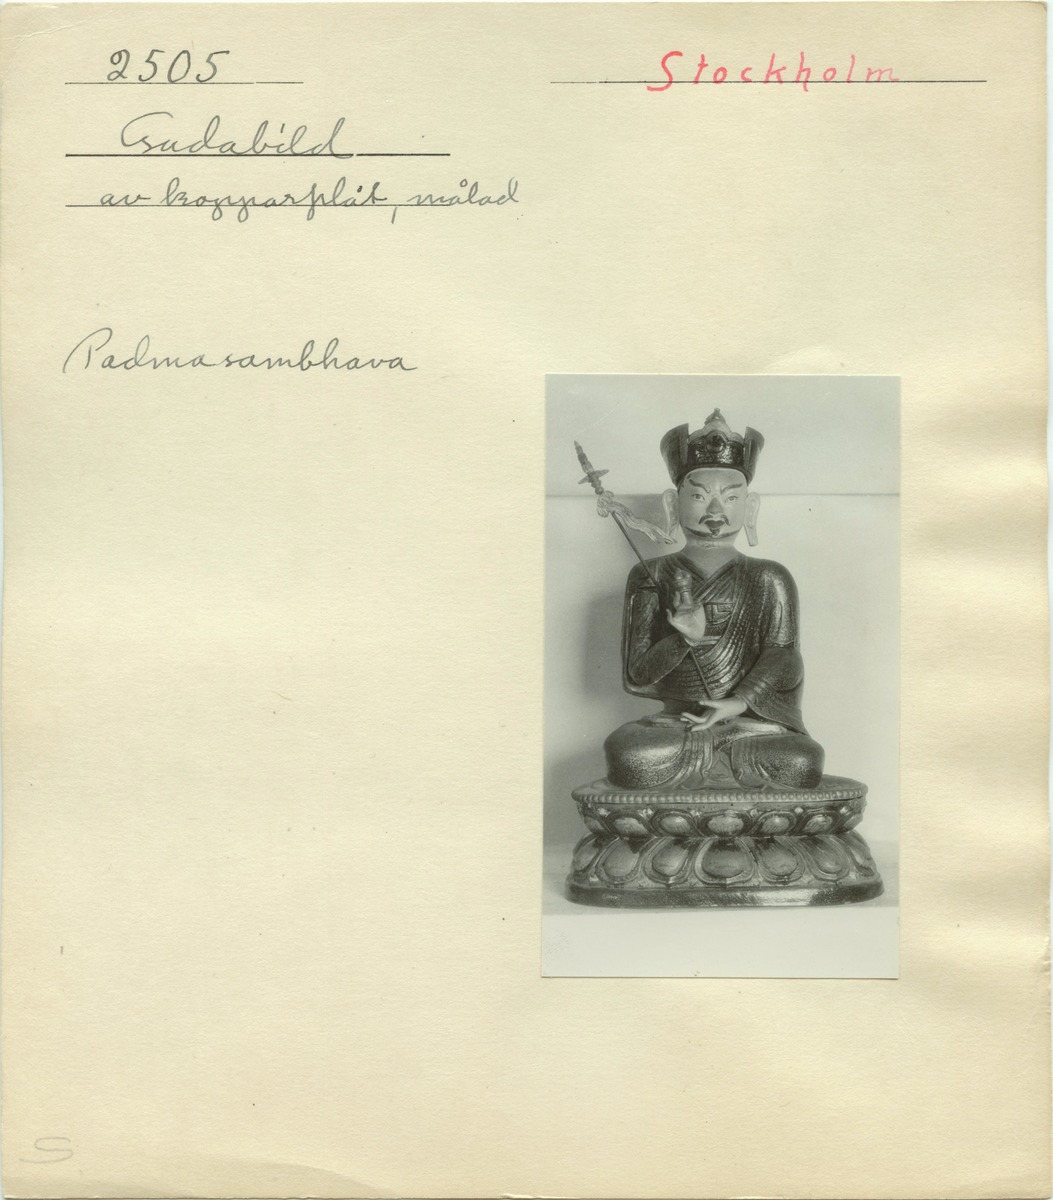 2505
Stockholm
Gudabild
av kopparplåt, målad
Padmasambhava
S